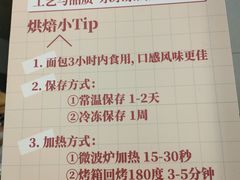 烘焙小Tip
1. 面包3小时内食用,口感风味更佳
2. 保存方式:
①常温保存 1-2天
②冷冻保存 1周
3. 加热方式:
①微波炉加热 15-30秒
②烤箱回烤180度 3-5分钟